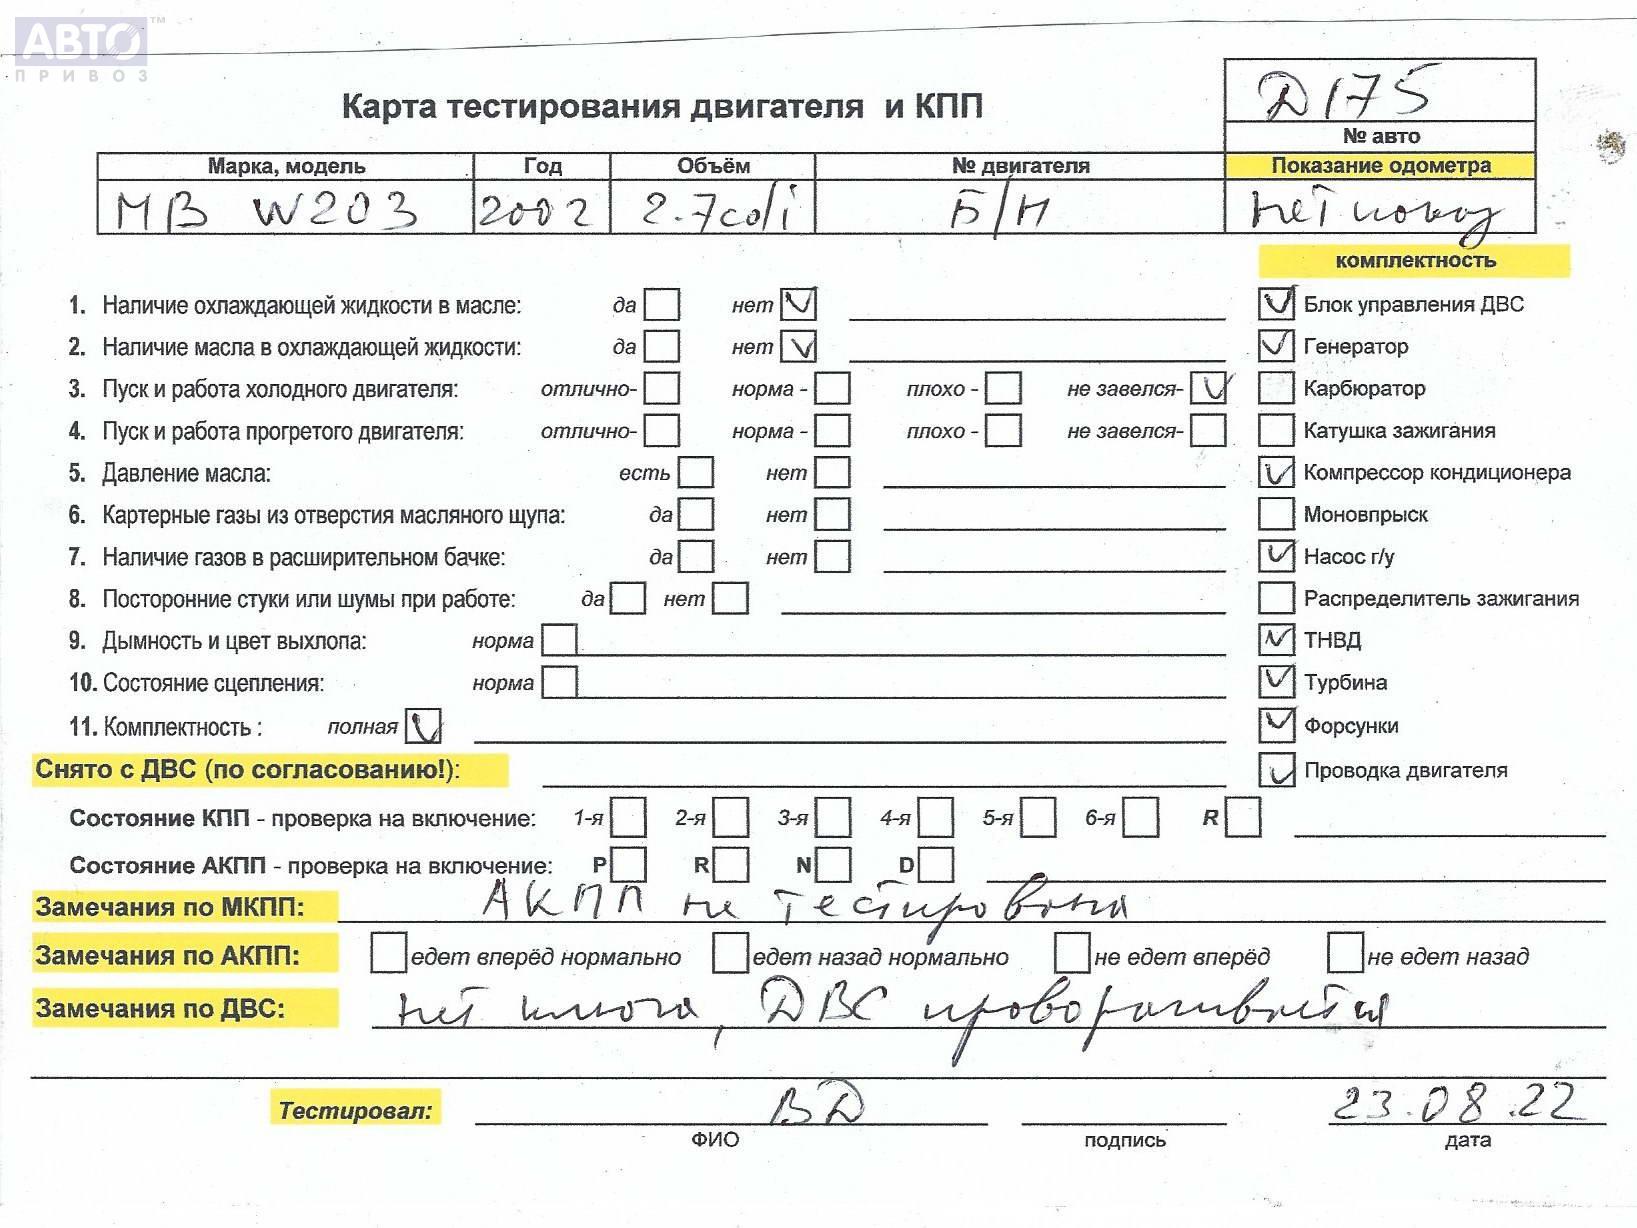 АВТО™
ПРИВОЗ
Карта тестирования двигателя и КПП
Д175
№ авто
Марка, модель Год Объём № двигателя Показание одометра
МВ W203 2002 2.7cdi Б/Н нет показ
комплектность
1. Наличие охлаждающей жидкости в масле: да нет Блок управления ДВС
2. Наличие масла в охлаждающей жидкости: да нет Генератор
3. Пуск и работа холодного двигателя: отлично- норма - плохо - не завелся- Карбюратор
4. Пуск и работа прогретого двигателя: отлично- норма - плохо - не завелся- Катушка зажигания
5. Давление масла: есть нет Компрессор кондиционера
6. Картерные газы из отверстия масляного щупа: да нет Моновпрыск
7. Наличие газов в расширительном бачке: да нет Насос г/у
8. Посторонние стуки или шумы при работе: да нет Распределитель зажигания
9. Дымность и цвет выхлопа: норма ТНВД
10. Состояние сцепления: норма Турбина
11. Комплектность : полная Форсунки
Снято с ДВС (по согласованию!): Проводка двигателя
Состояние КПП - проверка на включение: 1-я 2-я 3-я 4-я 5-я 6-я R
Состояние АКПП - проверка на включение: P R N D
Замечания по МКПП: АКПП не тестирована
Замечания по АКПП: едет вперёд нормально едет назад нормально не едет вперёд не едет назад
Замечания по ДВС: нет ключа, ДВС проворачивается
Тестировал: ВД 23.08.22
ФИО подпись дата